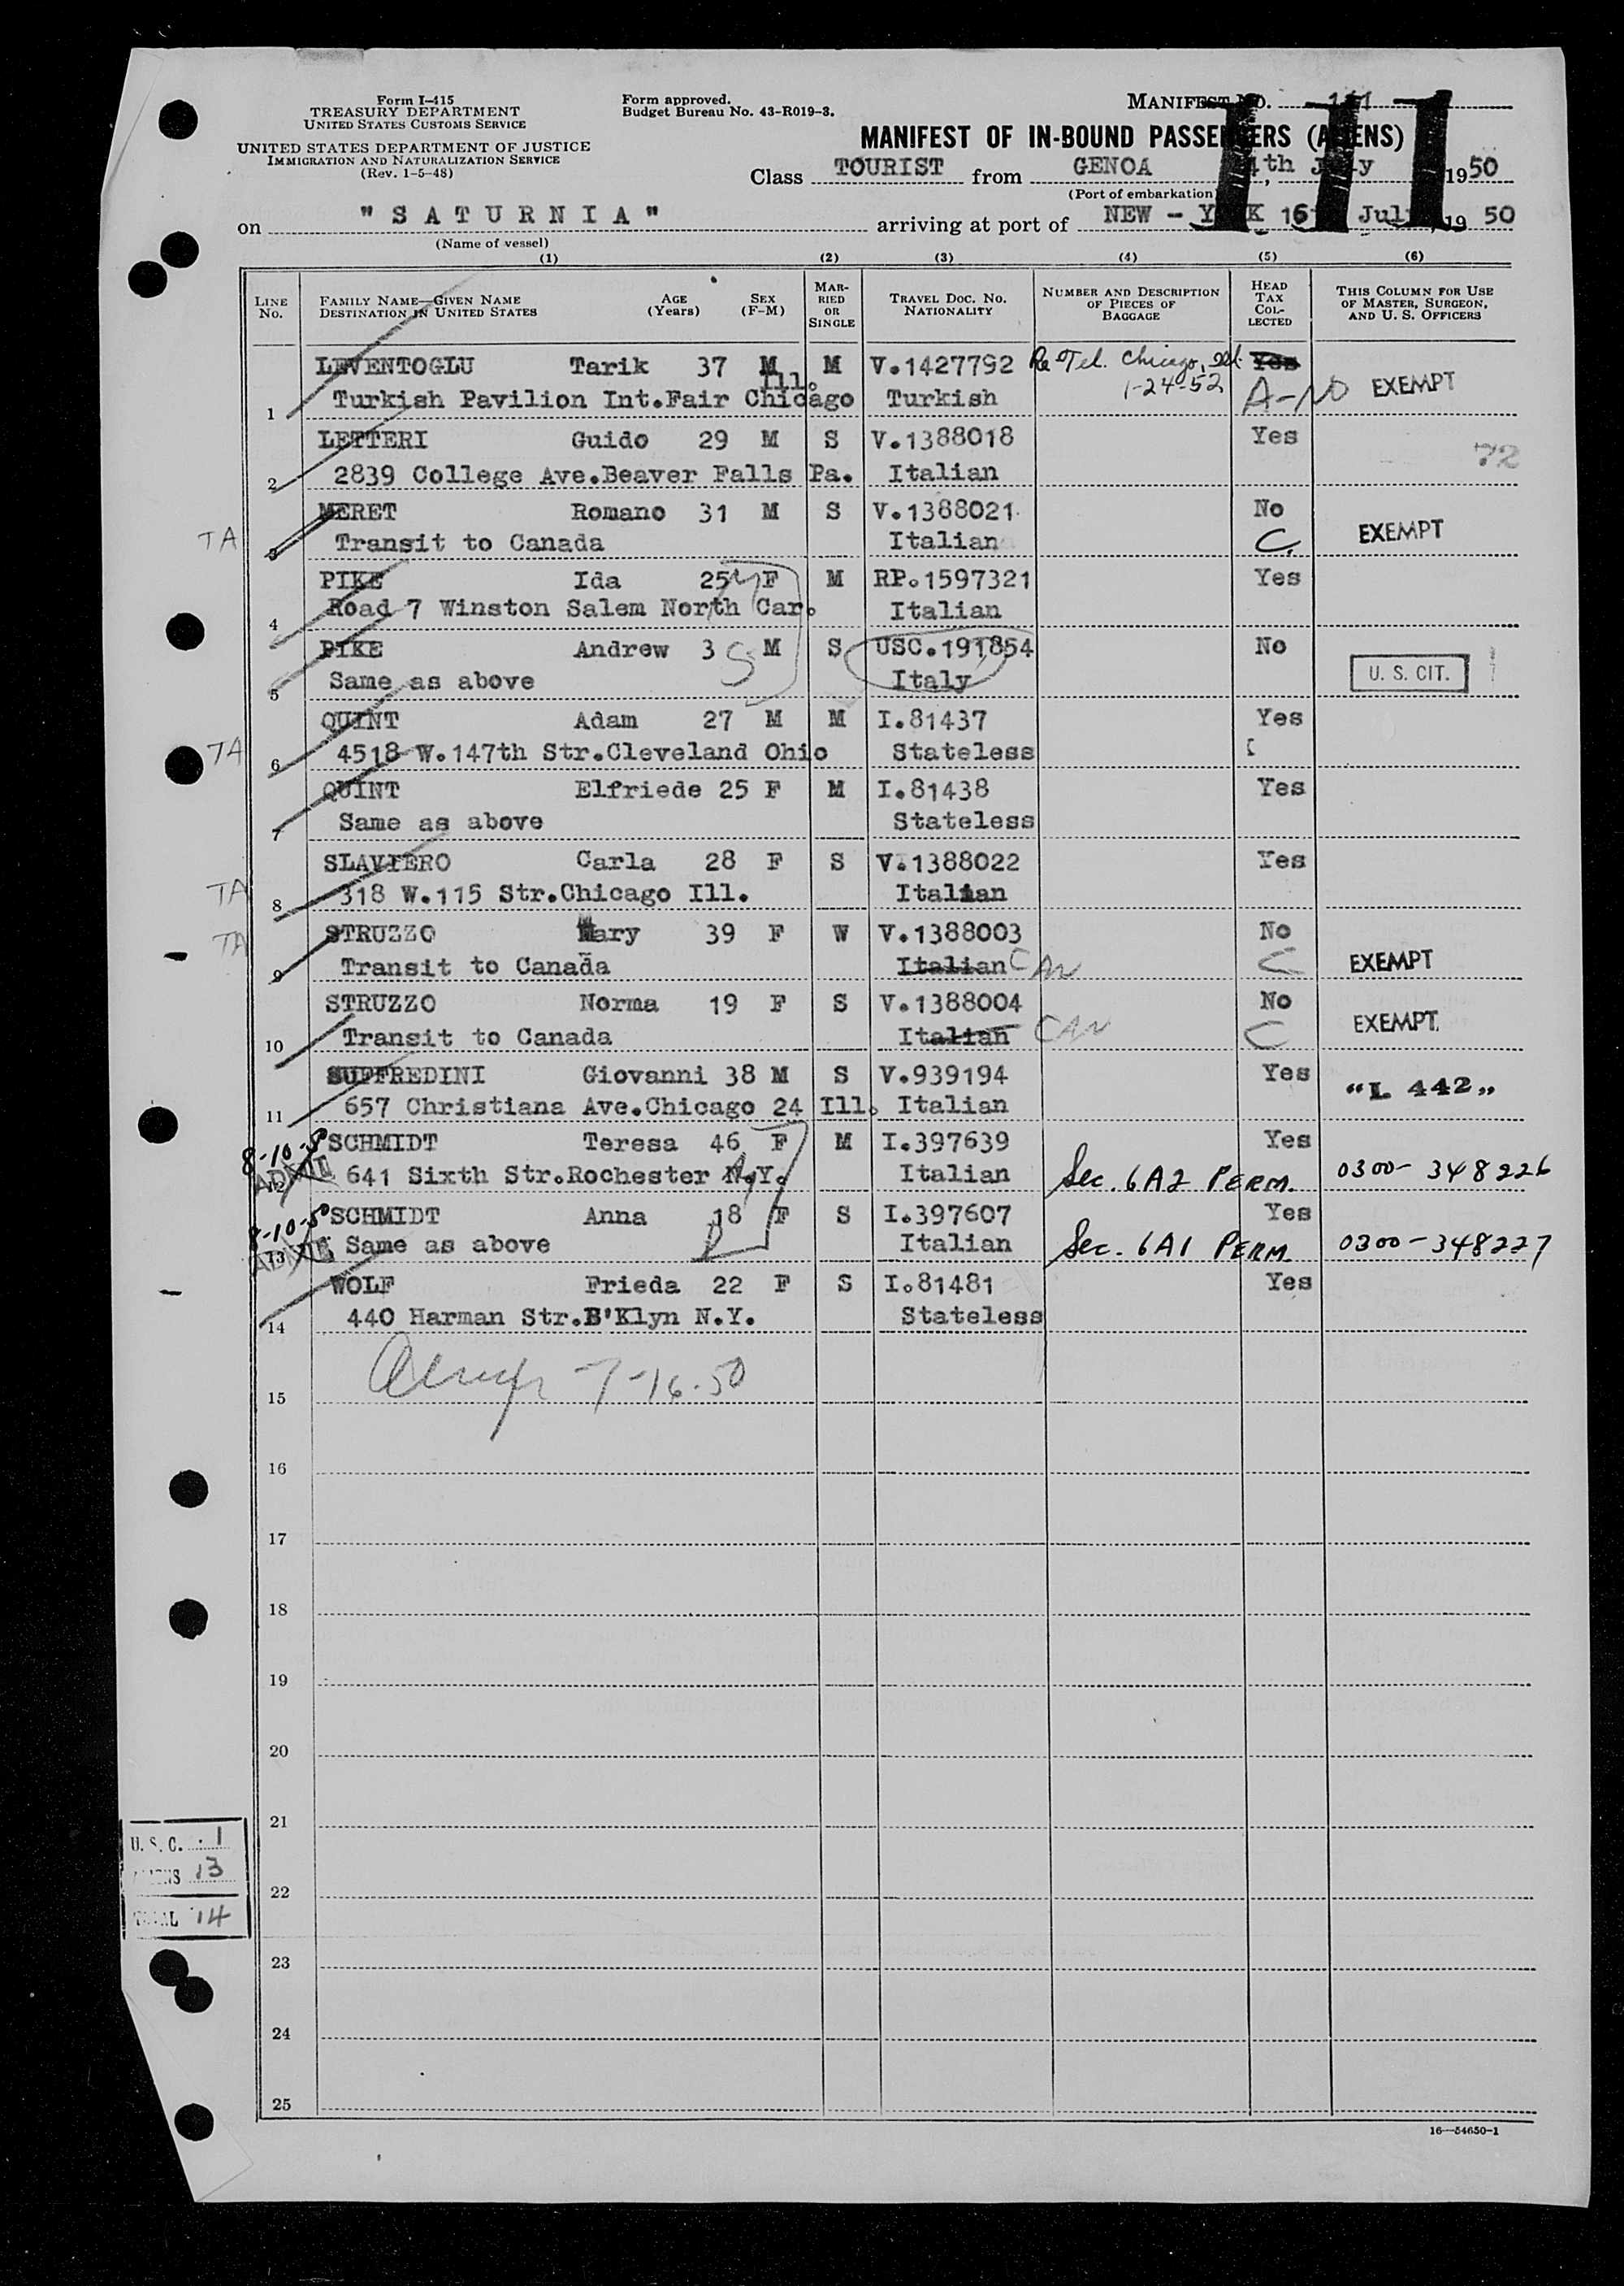 Form I-415
TREASURY DEPARTMENT
UNITED STATES CUSTOMS SERVICE
UNITED STATES DEPARTMENT OF JUSTICE
IMMIGRATION AND NATURALIZATION SERVICE
(Rev. 1-5-48)
Form approved.
Budget Bureau No. 43-R019-3.
MANIFEST NO. 111
111
MANIFEST OF IN-BOUND PASSENGERS (ALIENS)
Class TOURIST from GENOA 4th July, 1950
(Port of embarkation)
on "SATURNIA" arriving at port of NEW-YORK 16th July, 1950
(Name of vessel)
(1) (2) (3) (4) (5) (6)
LINE No. FAMILY NAME—GIVEN NAME DESTINATION IN UNITED STATES AGE (Years) SEX (F-M) MARRIED OR SINGLE TRAVEL DOC. NO. NATIONALITY NUMBER AND DESCRIPTION OF PIECES OF BAGGAGE HEAD TAX COLLECTED THIS COLUMN FOR USE OF MASTER, SURGEON, AND U. S. OFFICERS
LEVENTOGLU Tarik 37 M M V.1427792 Re Tel. Chicago, Ill. Yes
1 Turkish Pavilion Int.Fair Chicago Ill. Turkish 1-24-52 A-NO EXEMPT
LETTERI Guido 29 M S V.1388018 Yes
2 2839 College Ave.Beaver Falls Pa. Italian 72
MERET Romano 31 M S V.1388021 No
TA 3 Transit to Canada Italian C. EXEMPT
PIKE Ida 25 F M RP.1597321 Yes
4 Road 7 Winston Salem North Car. Italian
PIKE Andrew 3 S M S USC.191854 No
5 Same as above Italy U. S. CIT.
QUINT Adam 27 M M I.81437 Yes
TA 6 4518 W.147th Str.Cleveland Ohio Stateless
QUINT Elfriede 25 F M I.81438 Yes
7 Same as above Stateless
SLAVIERO Carla 28 F S V.1388022 Yes
TA 8 318 W.115 Str.Chicago Ill. Italian
TA STRUZZO Mary 39 F W V.1388003 No
9 Transit to Canada Italian CAN C EXEMPT
STRUZZO Norma 19 F S V.1388004 No
10 Transit to Canada Italian CAN C EXEMPT
SUFFREDINI Giovanni 38 M S V.939194 Yes
11 657 Christiana Ave.Chicago 24 Ill. Italian "L 442"
8-10-50 SCHMIDT Teresa 46 F M I.397639 Yes
12 641 Sixth Str.Rochester N.Y. Italian Sec. 6A2 PERM. 0300-348226
8-10-50 SCHMIDT Anna 18 F S I.397607 Yes
13 Same as above Italian Sec. 6A1 PERM. 0300-348227
WOLF Frieda 22 F S I.81481 Yes
14 440 Harman Str.B'Klyn N.Y. Stateless
7-16-50
15
16
17
18
19
20
21
U. S. C. 1
ALIENS 13
22
TOTAL 14
23
24
25
16—54650-1